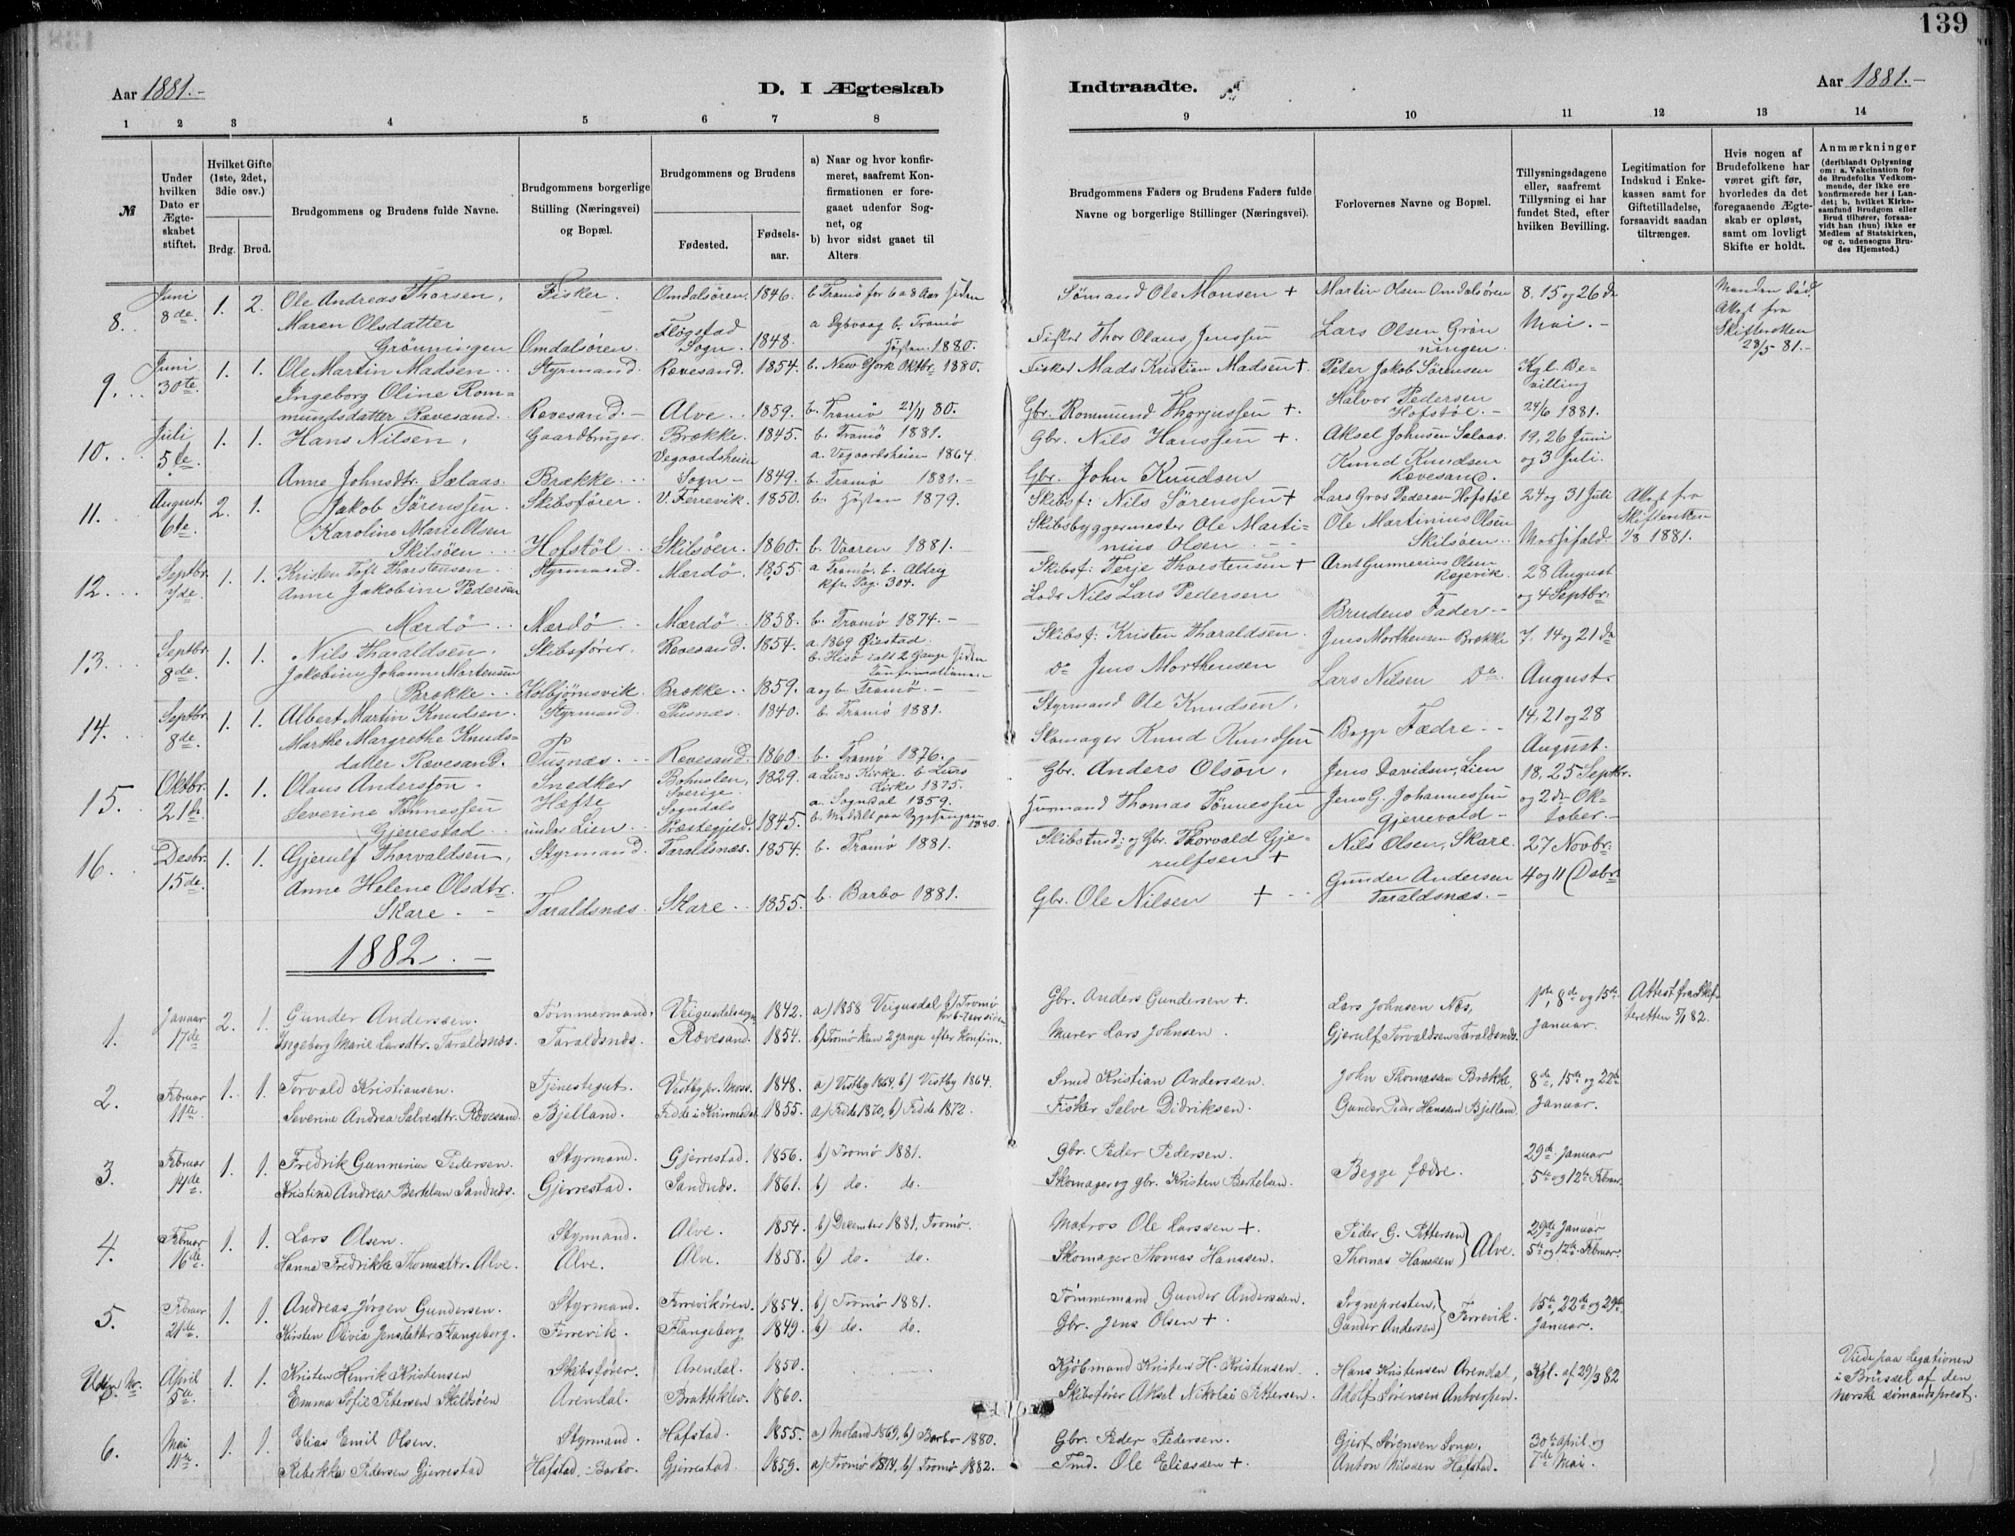 139
Aar 1881.-
D. I Ægteskab
Indtraadte.
Aar 1881.-
1 2 3 4 5 6 7 8 9 10 11 12 13 14
№
Under hvilken Dato er Ægteskabet stiftet.
Hvilket Gifte (1ste, 2det, 3die osv.)
Brdg. Brud.
Brudgommens og Brudens fulde Navne.
Brudgommens borgerlige Stilling (Næringsvei) og Bopæl.
Brudgommens og Brudens
Fødested. Fødselsaar.
a) Naar og hvor konfirmeret, saafremt Konfirmationen er foregaaet udenfor Sognet, og
b) hvor sidst gaaet til Alters
Brudgommens Faders og Brudens Faders fulde Navne og borgerlige Stillinger (Næringsvei).
Forlovernes Navne og Bopæl.
Tillysningsdagene eller, saafremt Tillysning ei har fundet Sted, efter hvilken Bevilling.
Legitimation for Indskud i Enkekassen samt for Giftetilladelse, forsaavidt saadan tiltrænges.
Hvis nogen af Brudefolkene har været gift før, hvorledes da det foregaaende Ægteskab er opløst, samt om lovligt Skifte er holdt.
Anmærkninger
(deriblandt Oplysning om: a. Vakcination for de Brudefolks Vedkommende, der ikke ere konfirmerede her i Landet; b. hvilket Kirkesamfund Brudgom eller Brud tilhører, forsaavidt han (hun) ikke er Medlem af Statskirken, og c. udensogns Brudes Hjemsted.)
8. Juni 8de. 1. 2. Ole Andreas Thorsen, Fisker. Omdalsören. 1846. b. Tromö for 6 a 8 Aar siden Sømand Ole Monsen + Martin Olsen Omdalsören 8. 15 og 26 de Mai. - Manden död Attest fra Skifteretten 28/5 81.-
Maren Olsdatter Grönningen Omdalsören. Flosta Sogn. 1848. a Dybvaag b. Tromö Hösten 1880. Fisker Thor Olaus Jenssen Lars Olsen Grönningen.
9. Juni 30te. 1. 1. Ole Martin Madsen Styrmand. Rævesand. 1854. b. New York Oktbr 1880. Fisker Mads Kristian Madsen +. Peter Jakob Sörensen Kgl. Bevilling
Ingeborg Oline Rommundsdatter Rævesand. Rævesand.- Alve. 1859. b. Tromö 21/11 80. Gbr. Rommund Thorjussen +. Halvor Pedersen Hofstöl.- 24/6 1881.
10. Juli 5te. 1. 1. Hans Nilsen, Gaardbruger. Brække. 1845. b. Tromö 1881. Gbr. Nils Hanssen + Aksel Johnsen Salaas. 19, 26 Juni og 3 Juli.
Anne Johnsdtr. Sælaas. Brække. Vegaardsheien Sogn - 1849. a. Vegaardsheien 1864. b. Tromö 1881.- Gbr. John Knudsen Knud Knudsen Rævesand.
11. August. 6te. 2. 1. Jakob Sörenssen. Skibsförer. V. Ferrevik. 1850. b. Hösten 1879. Skibsf: Nils Sörenssen + Lars Gros Pedersen Hofstöl 24 og 31 Juli Attest fra Skifteretten 1/8 1881.
Karoline Marie Olsen Skilsöen Hofstöl Skilsöen. 1860. b. Vaaren 1881. Skibsbyggermester Ole Martinius Olsen Ole Martinius Olsen Skilsöen
12. Septbr. 7de. 1. 1. Kristen Toft Thorstensen. Styrmand. Mærdö. 1855. a Tromö b. Aldrig Kfr. Pag. 304. Skibsf: Terje Thorstensen + Arnt Gunnerius Olsen 28 August og 4 Septbr.
Anne Jakobine Pedersen Mærdö Mærdö Mærdö. 1858. b. Tromö 1874.- Lods Nils Lars Pedersen Brudens Fader.-
13. Septbr. 8de. 1. 1. Nils Tharaldsen. Skibsförer. Rævesand. 1854. a. 1869 Öiestad. b. Hisö ialt 2 Gange siden Konfirmationen Skibsf: Kristen Tharaldsen. Jens Morthensen Brække 7. 14 og 21 de
Jakobine Johanne Mortensen Brække Kolbjörnsvik. Brække. 1859. a og b. Tromö. - do Jens Morthensen Lars Nilsen do August.
14. Septbr. 8de. 1. 1. Albert Martin Knudsen. Styrmand. Pusnæs. 1840. b. Tromö 1881. Styrmand Ole Knudsen, Begge Fædre. 14, 21 og 28
Marthe Margrethe Knudsdatter Rævesand. Pusnæs. Rævesand. 1860. b. Tromö 1876. Skomager Knud Knudsen August.
15. Oktbr. 21de. 1. 1. Olaus Andersson. Snedker Bohuslen, Sverige. 1829. a Lurs Kirke. b. Lurs Kirke 1875. Gbr. Anders Olson, Jens Davidsen, Lien 18, 25 Septbr.
Severine Tönnessen Gjerrestad Hæfte under Lien Sogndals Præstegjeld. 1845. a. Sogndal 1859. 1880. Husmand Thomas Tönnessen Jens G. Johannessen Gjerrevold - og 2den Oktober.
16. Desbr. 15de. 1. 1. Gjerulf Thorvaldsen, Styrmand. Taraldsnæs. 1854. b. Tromö 1881. og Gbr. Thorvald Gjerulfsen + Nils Olsen, Skare. 27 Novbr.
Anne Helene Olsdtr. Skare. - Taraldsnæs. Skare. 1855. b. Barbo 1881. Gbr. Ole Nilsen + Gunder Andersen Taraldsnæs.- 4 og 11 (Dsbr.
1882.-
1. Januar 17de 2. 1. Gunder Anderssen. Tømmermand. Veigusdalsogn 1842. a) 1858 Veigusdal b) Tromø Gbr. Anders Gundersen +. Lars Johnsen Næs, 1ste, 8de og 15de Attest fra Skifteretten 5/1 82.
Ingeborg Marie Larsdtr. Taraldsnæs. Taraldsnæs. Rævesand. 1854. b) Tromø kun 2 gange efter Konfirm. Murer Lars Johnsen. Gjerulf Torvaldsen Taraldsnæs. Januar.
2. Februar 11te. 1. 1. Torvald Kristiansen. Tjenestegut. Vestby pr. Moss. 1848. a) Vestby 1864, b) Vestby 1864. Smed Kristian Anderssen. John Thomassen Brække, 8de, 15de og 22de
Severine Andrea Salvesdtr. Rævesand. Bjelland. Fedde i Kvinesdal 1855. a) Fedde 1870, b) Fedde 1872. Fisker Salve Didriksen. Gunder Peder Hanssen Bjelland. Januar.
3. Februar 14de. 1. 1. Fredrik Gunnerius Pedersen. Styrmand. Gjerrestad. 1856. b) Tromø 1881. Gbr. Peder Pedersen. Begge fædre. 29de Januar
Kristina Andrea Bertelsen Sandnæs. Gjerrestad. Sandnæs. 1861. b) do. do. Skomager og gbr. Kristen Bertelsen. 5te og 12te Februar.
4. Februar 16de 1. 1. Lars Olsen. Styrmand. Alve. 1854. b) December 1881. Tromø. Matros Ole Larssen +. Peder G. Pettersen } Alve. 29de Januar
Hanna Fredrikke Thomasdtr. Alve. Alve. Alve. 1858. b) do. do. Skomager Thomas Hanssen. Thomas Hanssen 5te og 12te Februar.
5. Februar 21de. 1. 1. Andreas Jørgen Gundersen. Styrmand. Ferrevikøren. 1854. b) Tromø 1881. Tømmermand Gunder Anderssen. Sognepresten, } Ferrevik. 15de, 22de og 29de
Kirsten Olivia Jensdatter Flangeborg. Ferrevik. Flangeborg 1849. b) do. do. Gbr. Jens Olsen +. Gunder Andersen Januar.
Uden Nr. April 5te 1. 1. Kristen Henrik Kristensen Skibsfører. Arendal. 1850. Kjøbmand Kristen H. Kristensen. Hans Kristensen Arendal, Kgl. af 29/3 82 Viede paa legationen i Brüssel af den norske sømandsprest.
Emma Sofie Petersen Skilsøen Arendal. Brattekleiv. 1860. Skibsfører Aksel Nikolai Pettersen. Adolf Sørensen Antwerpen.
6. Mai 11te 1. 1. Elias Emil Olsen. Styrmand. Hafstad. 1855. a) Moland 1869, b) Barbo 1880. Gbr. Peder Pedersen. Gjert Sørensen Songe. 30te April og
Rebekka Pedersen Gjerrestad Hafstad, Barbo. Gjerrestad. 1859. a) Tromø 1874, b) Tromø 1882. Tmd. Ole Eliassen +. Anton Nilssen Hafstad. 7de Mai.